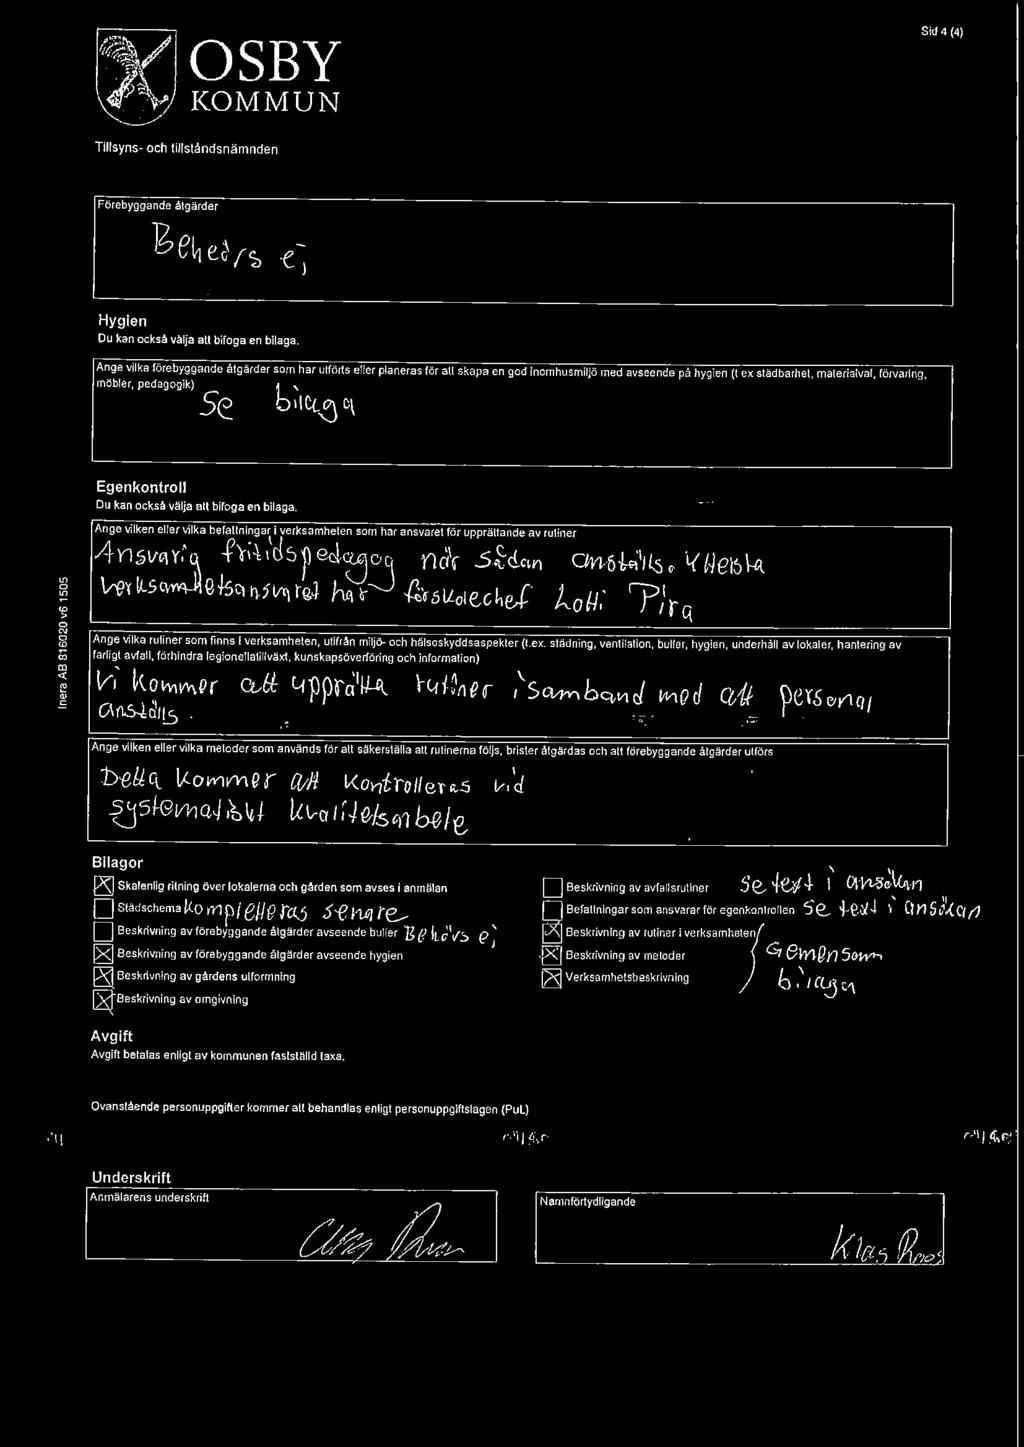 Sid 4 (4)
OSBY
KOMMUN
Tillsyns- och tillståndsnämnden
Förebyggande åtgärder
Behövs ej
Hygien
Du kan också välja att bifoga en bilaga.
Ange vilka förebyggande åtgärder som har utförts eller planeras för att skapa en god inomhusmiljö med avseende på hygien (t ex städbarhet, materialval, förvaring,
möbler, pedagogik)
Se bilaga
Egenkontroll
Du kan också välja att bifoga en bilaga.
Ange vilken eller vilka befattningar i verksamheten som har ansvaret för upprättande av rutiner
Ansvarig fritidspedagog när sådan anställs. Ytterista
verksamhetsansvaret har förskolechef Lotti Pira
Ange vilka rutiner som finns i verksamheten, utifrån miljö- och hälsoskyddsaspekter (t.ex. städning, ventilation, buller, hygien, underhåll av lokaler, hantering av
farligt avfall, förhindra legionellatillväxt, kunskapsöverföring och information)
Vi kommer att upprätta rutiner i samband med att personal
anställs.
Ange vilken eller vilka metoder som används för att säkerställa att rutinerna följs, brister åtgärdas och att förebyggande åtgärder utförs
Detta kommer att kontrolleras vid
systematiskt kvalitetsarbete
Bilagor
Skalenlig ritning över lokalerna och gården som avses i anmälan
Städschema kompletteras senare
Beskrivning av förebyggande åtgärder avseende buller Behövs ej
Beskrivning av förebyggande åtgärder avseende hygien
Beskrivning av gårdens utformning
Beskrivning av omgivning
Beskrivning av avfallsrutiner Se text i ansökan
Befattningar som ansvarar för egenkontrollen Se text i ansökan
Beskrivning av rutiner i verksamheten
Beskrivning av metoder
Verksamhetsbeskrivning
Gemensam
bilaga
Avgift
Avgift betalas enligt av kommunen fastställd taxa.
Ovanstående personuppgifter kommer att behandlas enligt personuppgiftslagen (PuL)
Underskrift
Anmälarens underskrift
Namnförtydligande
Klas Roos
Inera AB 816020 v6 1505